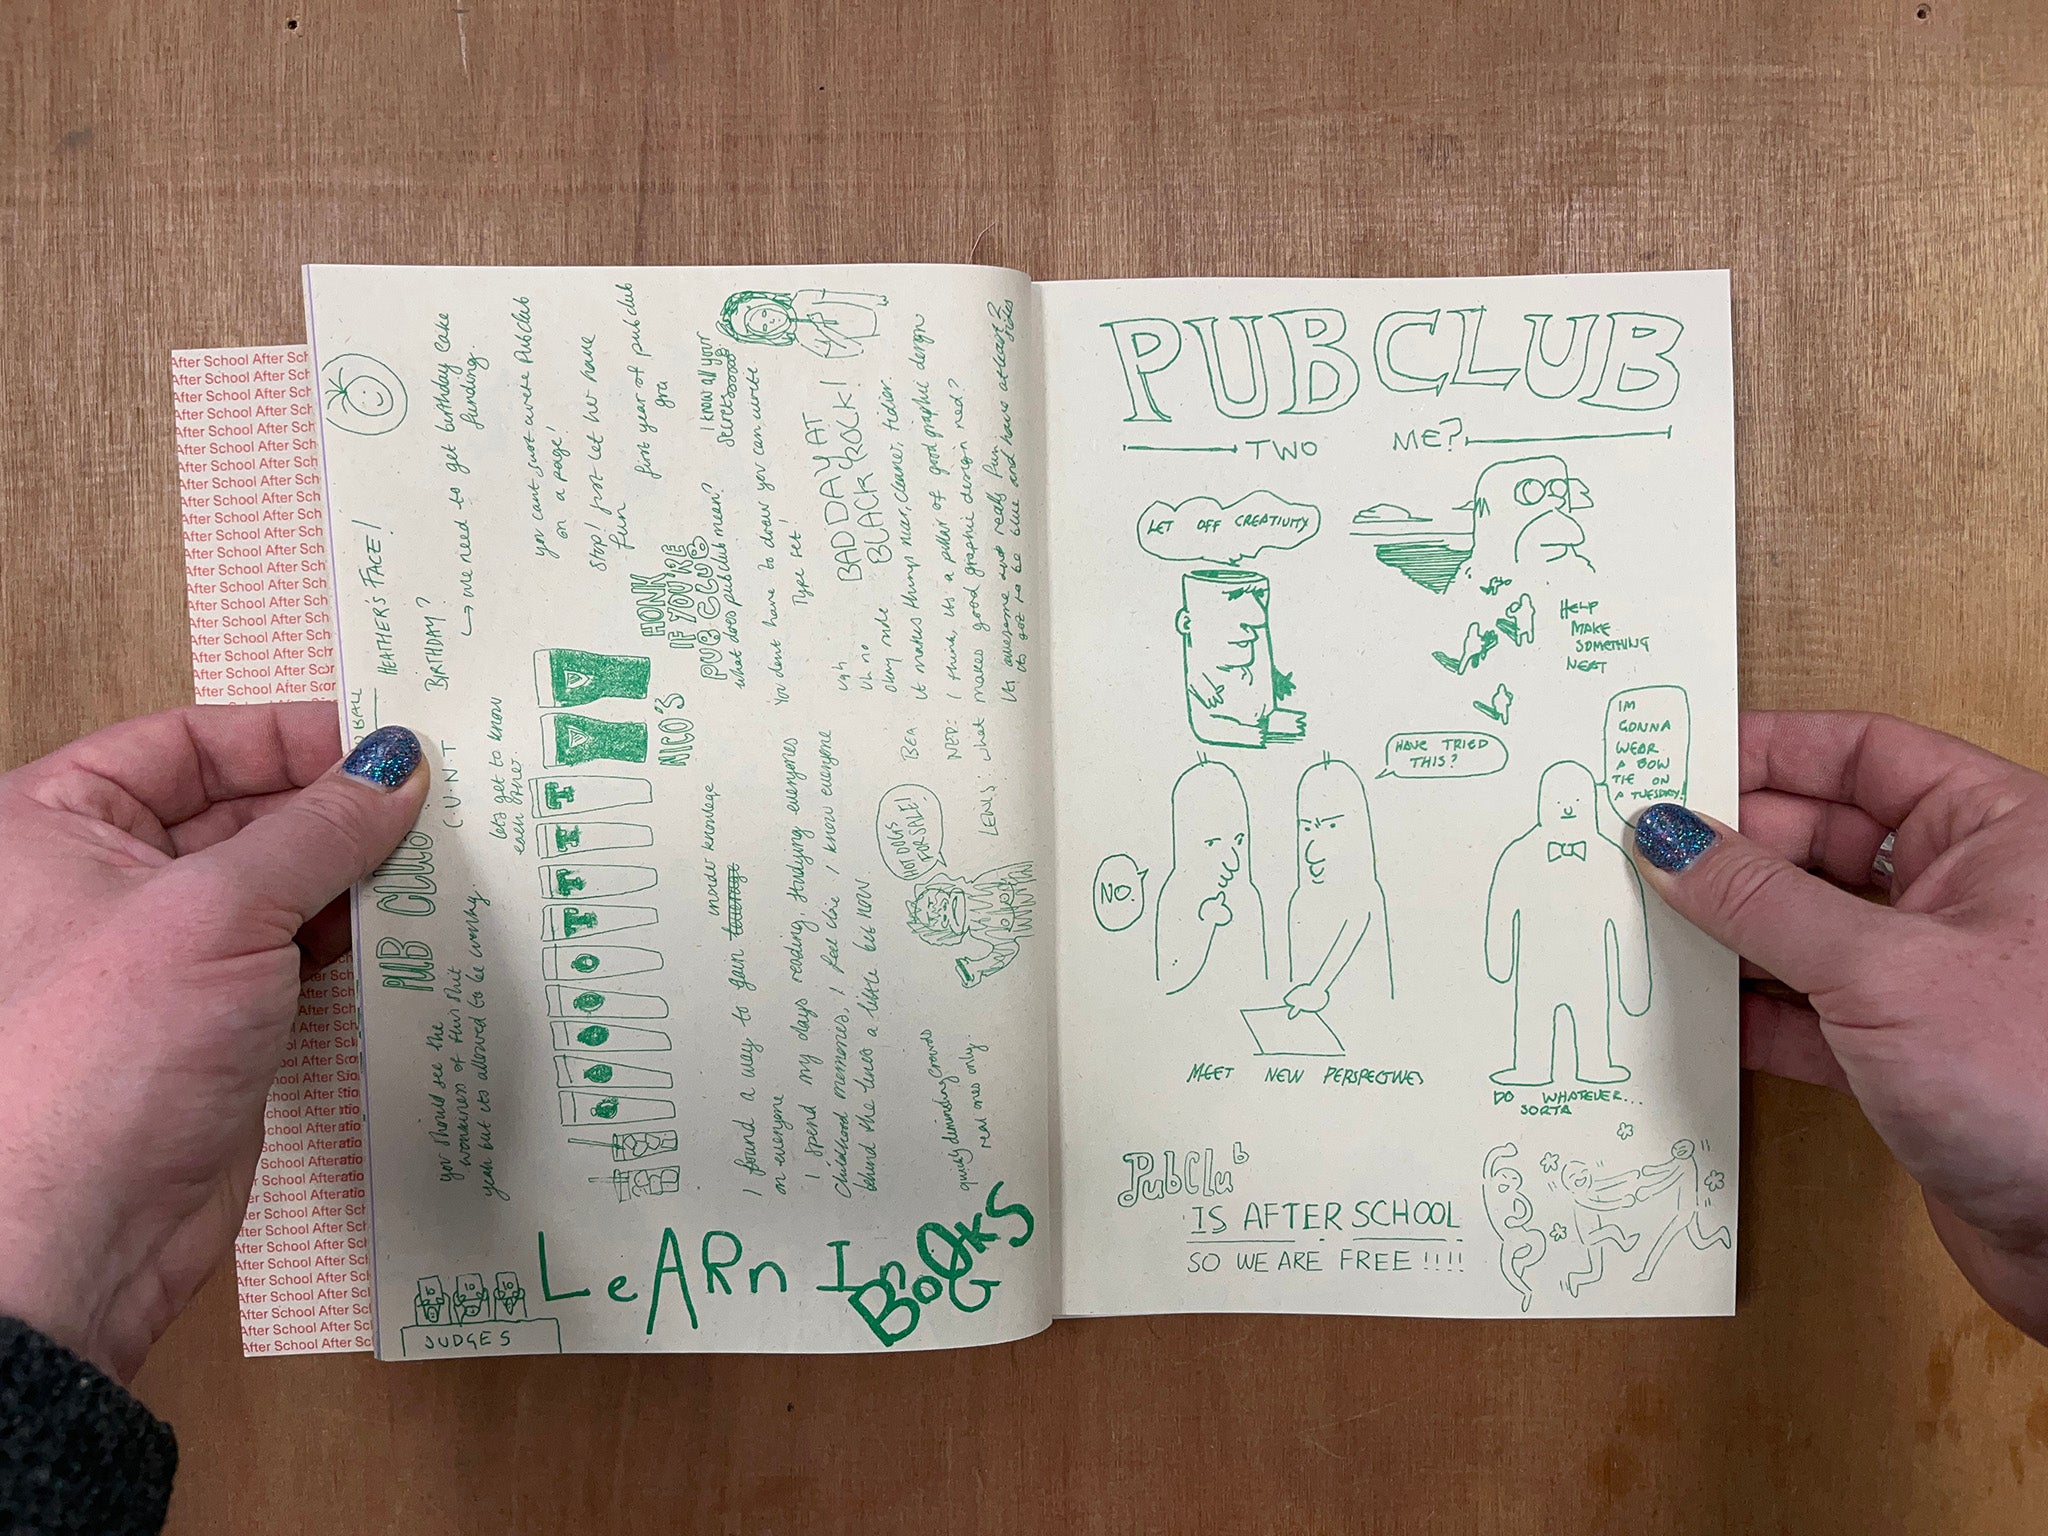 After School After Sch
After School After Sch
After School After Sch
After School After Sch
After School After Sch
After School After Sch
After School After Sch
After School After Sch
After School After Sch
After School After Sch
After School After Sch
After School After Sch
After School After Sch
After School After Sch
After School After Sch
After School After Scor
After School After Scor
BALL
HEATHER'S FACE!
BIRTHDAY?
→ we need to get birthday cake
funding.
PUB CLUB
C.U.N.T
you should see the
wonkiness of this shit
yeah but its allowed to be wonky.
lets get to know
each other
you cant just write Pubclub
on a page!
Stop! just let her have
fun
first year of pubclub
gra
HONK
IF YOU'RE
PUB CLUB
NICO'S
what does pubclub mean?
I know all your
secretsssss
You dont have to draw you can write
Type set!
BAD DAY AT
BLACK ROCK!
ugh
Uh no
Okay nude
I found a way to gain insider knowledge
on everyone
I spend my days reading, studying everyones
Childhood memories, I feel like I know everyone
behind the lines a little bit now.
HOT DOGS
FOR SALE!
quickly diminishing crowds
real ones only.
BEA
it makes things nicer, cleaner, tidier
NED:
I think its a pillar of good graphic design
LEWIS:
what makes good graphic design ned?
its awesome and really fun
its got to be blue and have at least 2
sides
JUDGES
LeARn In
BOOKS
BOG
PUB CLUB
TWO ME?
LET OFF CREATIVITY
HELP
MAKE
SOMETHING
NEAT
HAVE TRIED
THIS?
NO.
IM
GONNA
WEAR
A BOW
TIE ON
A TUESDAY!
MEET NEW PERSPECTIVES
DO WHATEVER...
SORTA
PubClub
IS AFTER SCHOOL
SO WE ARE FREE !!!!